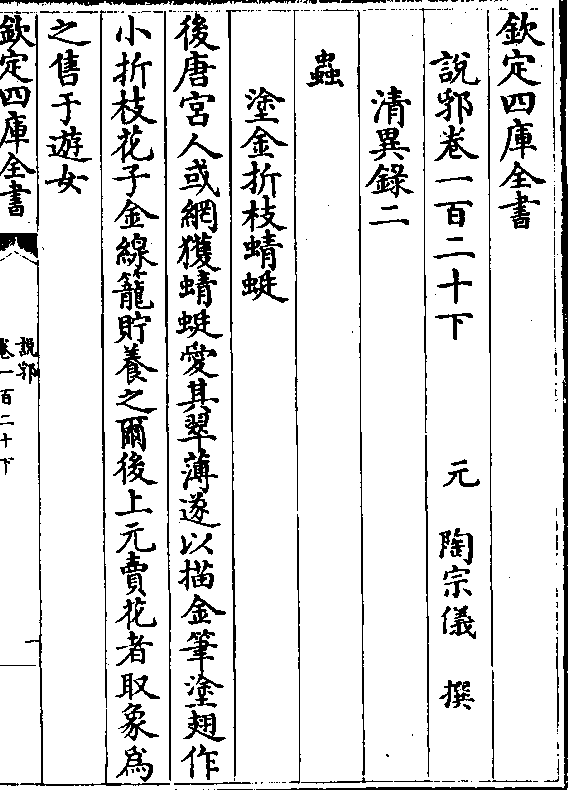 欽定四庫全書
說郛卷一百二十下 元 陶宗儀 撰
清異錄二
蟲
塗金折枝蜻蜓
後唐宮人或網獲蜻蜓愛其翠薄遂以描金筆塗翅作
小折枝花子金線籠貯養之爾後上元賣花者取象為
之售于遊女
欽定四庫全書
說郛
卷一百二十下
一